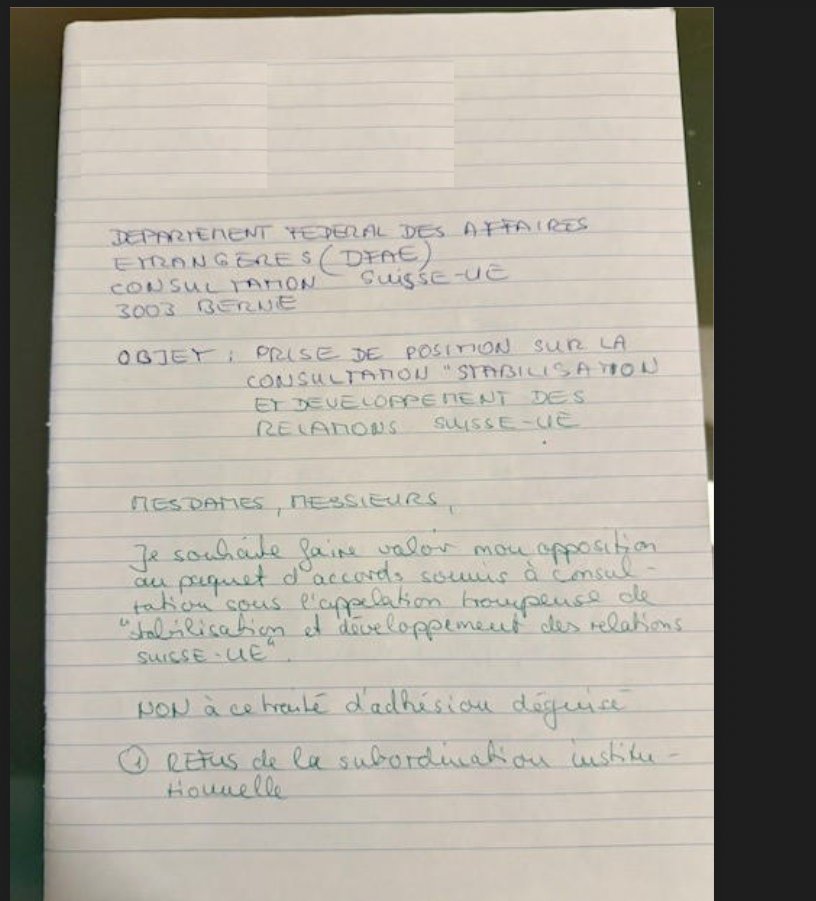 DEPARTEMENT FEDERAL DES AFFAIRES
ETRANGERES (DFAE)
CONSULTATION SUISSE-UE
3003 BERNE
OBJET : PRISE DE POSITION SUR LA
CONSULTATION "STABILISATION
ET DEVELOPPEMENT DES
RELATIONS SUISSE-UE
MESDAMES, MESSIEURS,
Je souhaite faire valoir mon opposition
au paquet d'accords soumis à consul-
tation sous l'appelation trompeuse de
"stabilisation et développement des relations
SUISSE-UE".
NON à ce traité d'adhésion déguisé
① REFUS de la subordination institu-
tionnelle